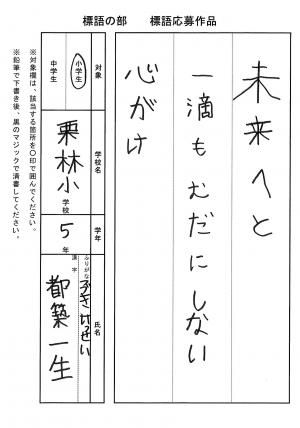 標語の部 標語応募作品
未来へと
一滴もむだにしない
心がけ
対象
小学生
中学生
学校名
栗林小学校
学年
5年
氏名
ふりがな
漢字
都築一生
※対象欄は、該当する箇所を〇印で囲んでください。
※鉛筆で下書き後、黒のマジックで清書してください。